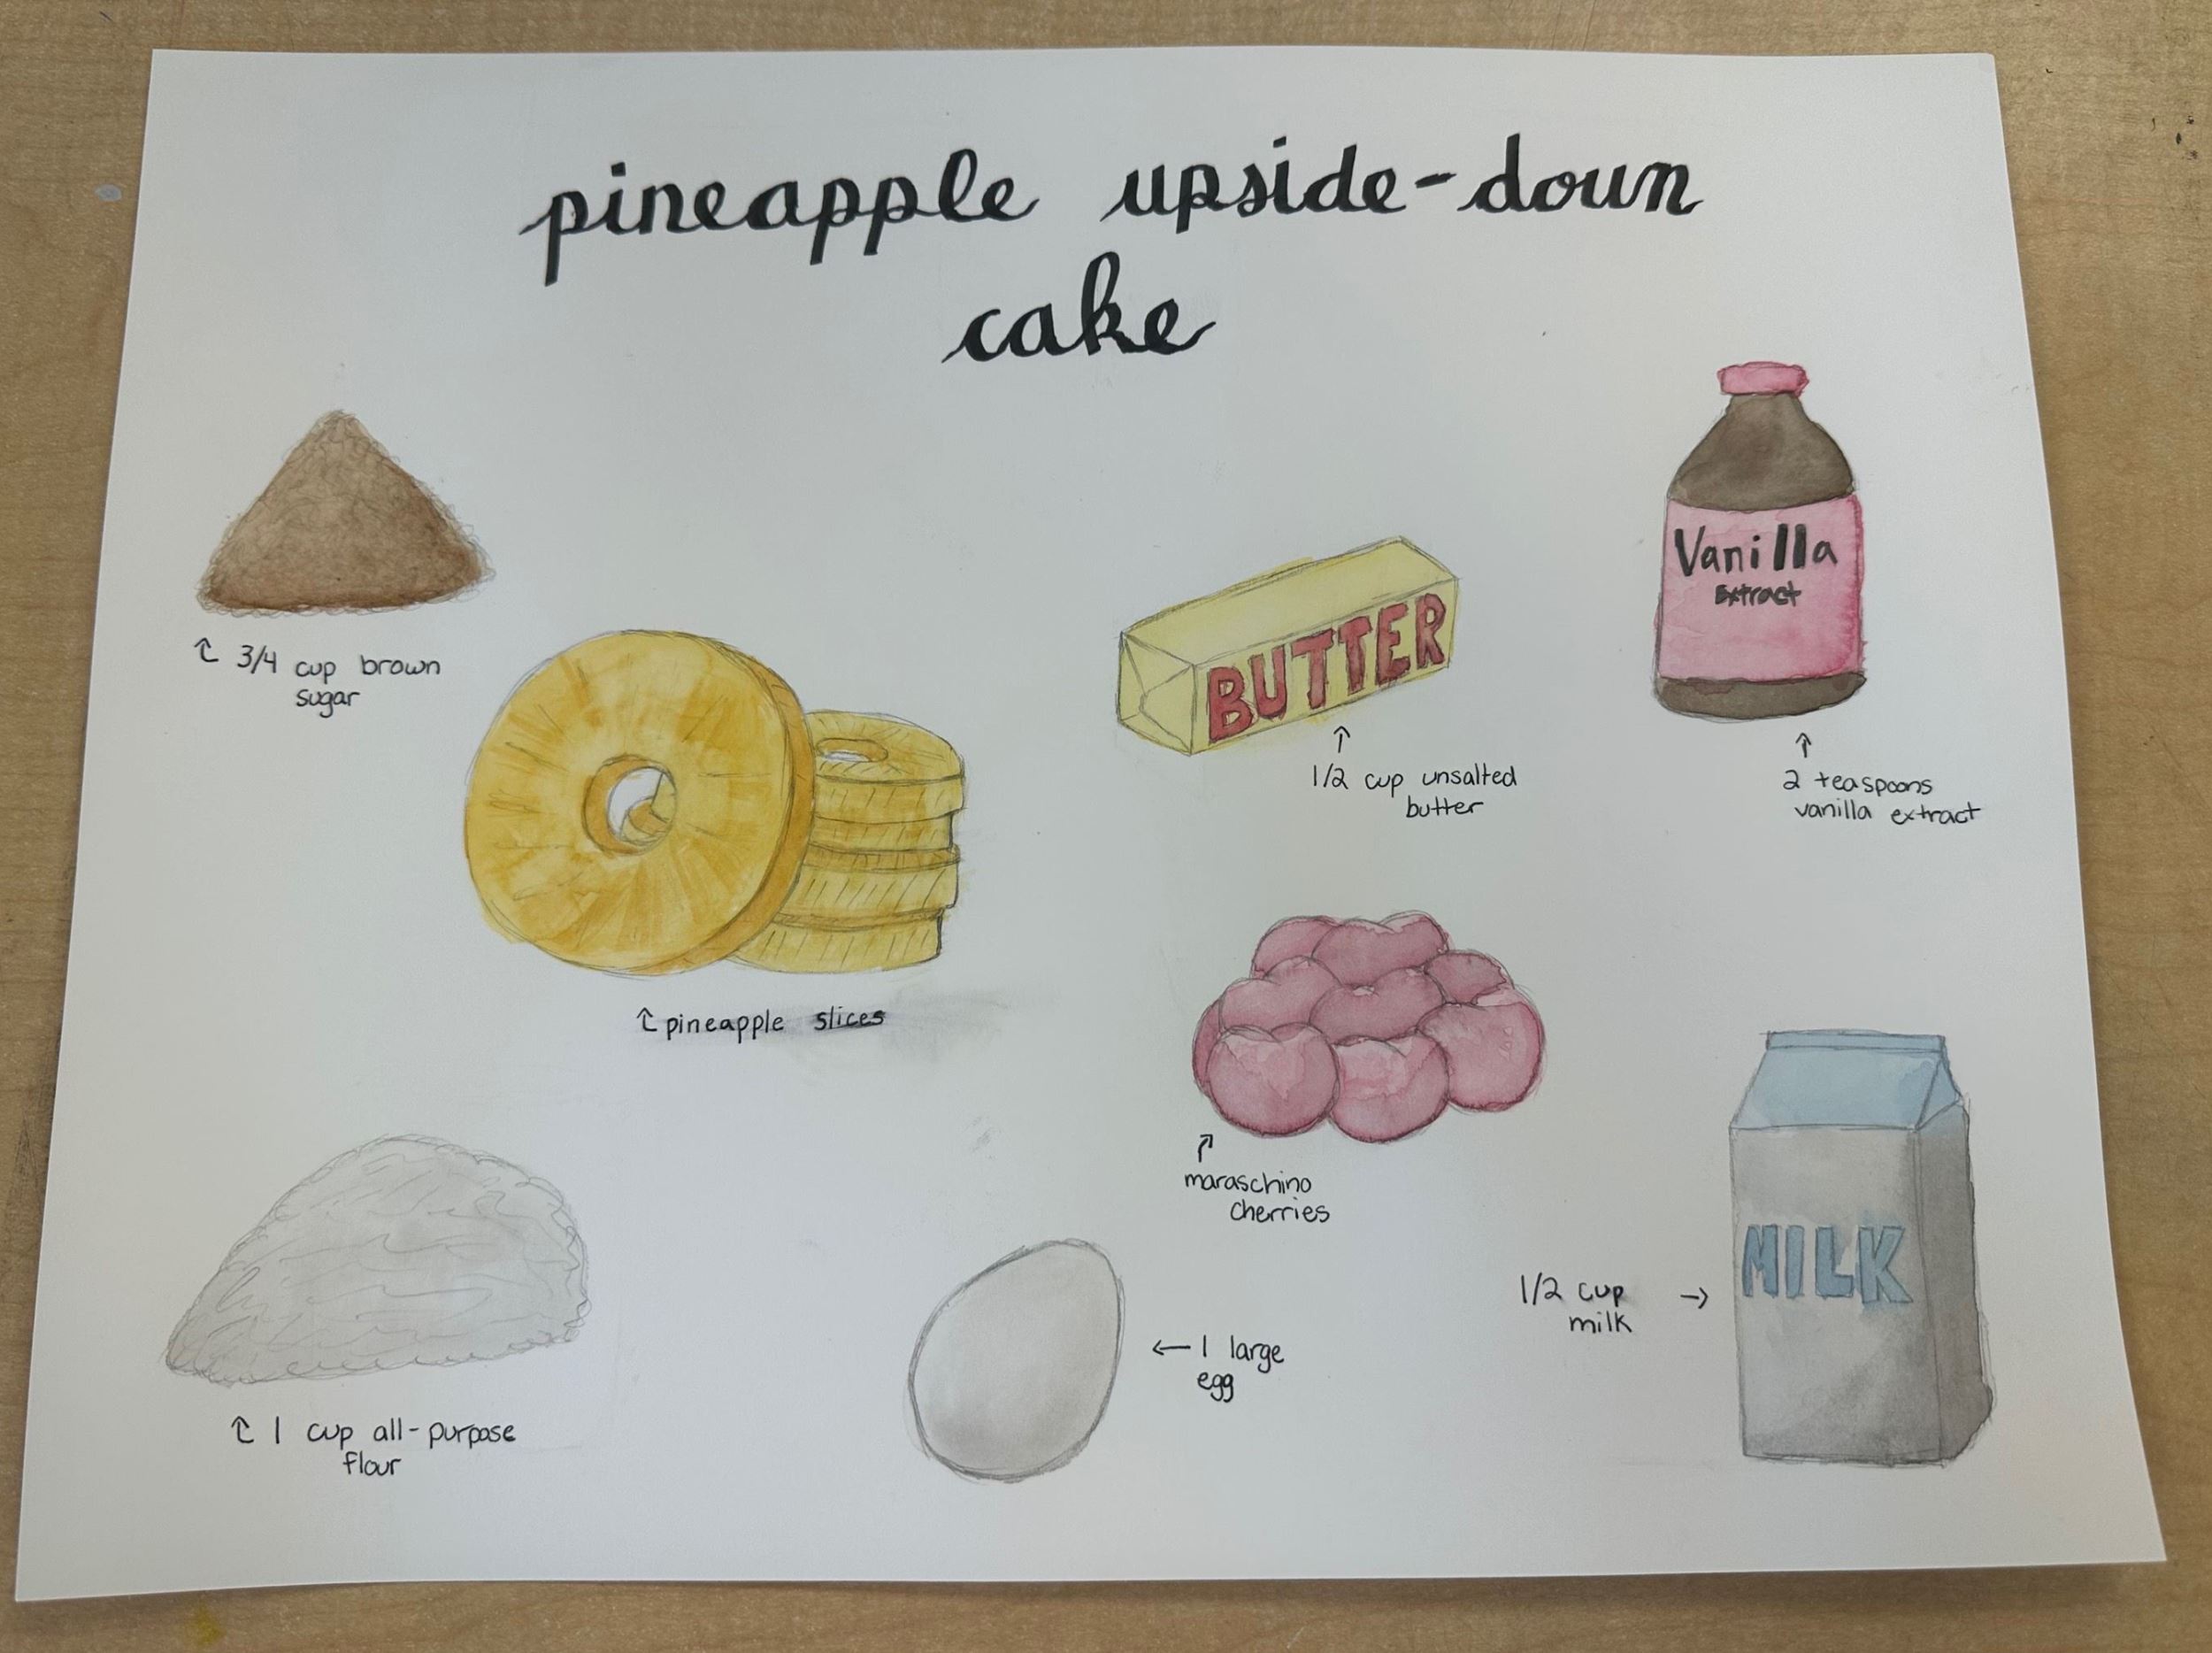 pineapple upside-down
cake
Vanilla
Extract
BUTTER
3/4 cup brown
sugar
1/2 cup unsalted
butter
2 teaspoons
vanilla extract
pineapple slices
maraschino
cherries
MILK
1/2 cup
milk
1 large
egg
1 cup all-purpose
flour